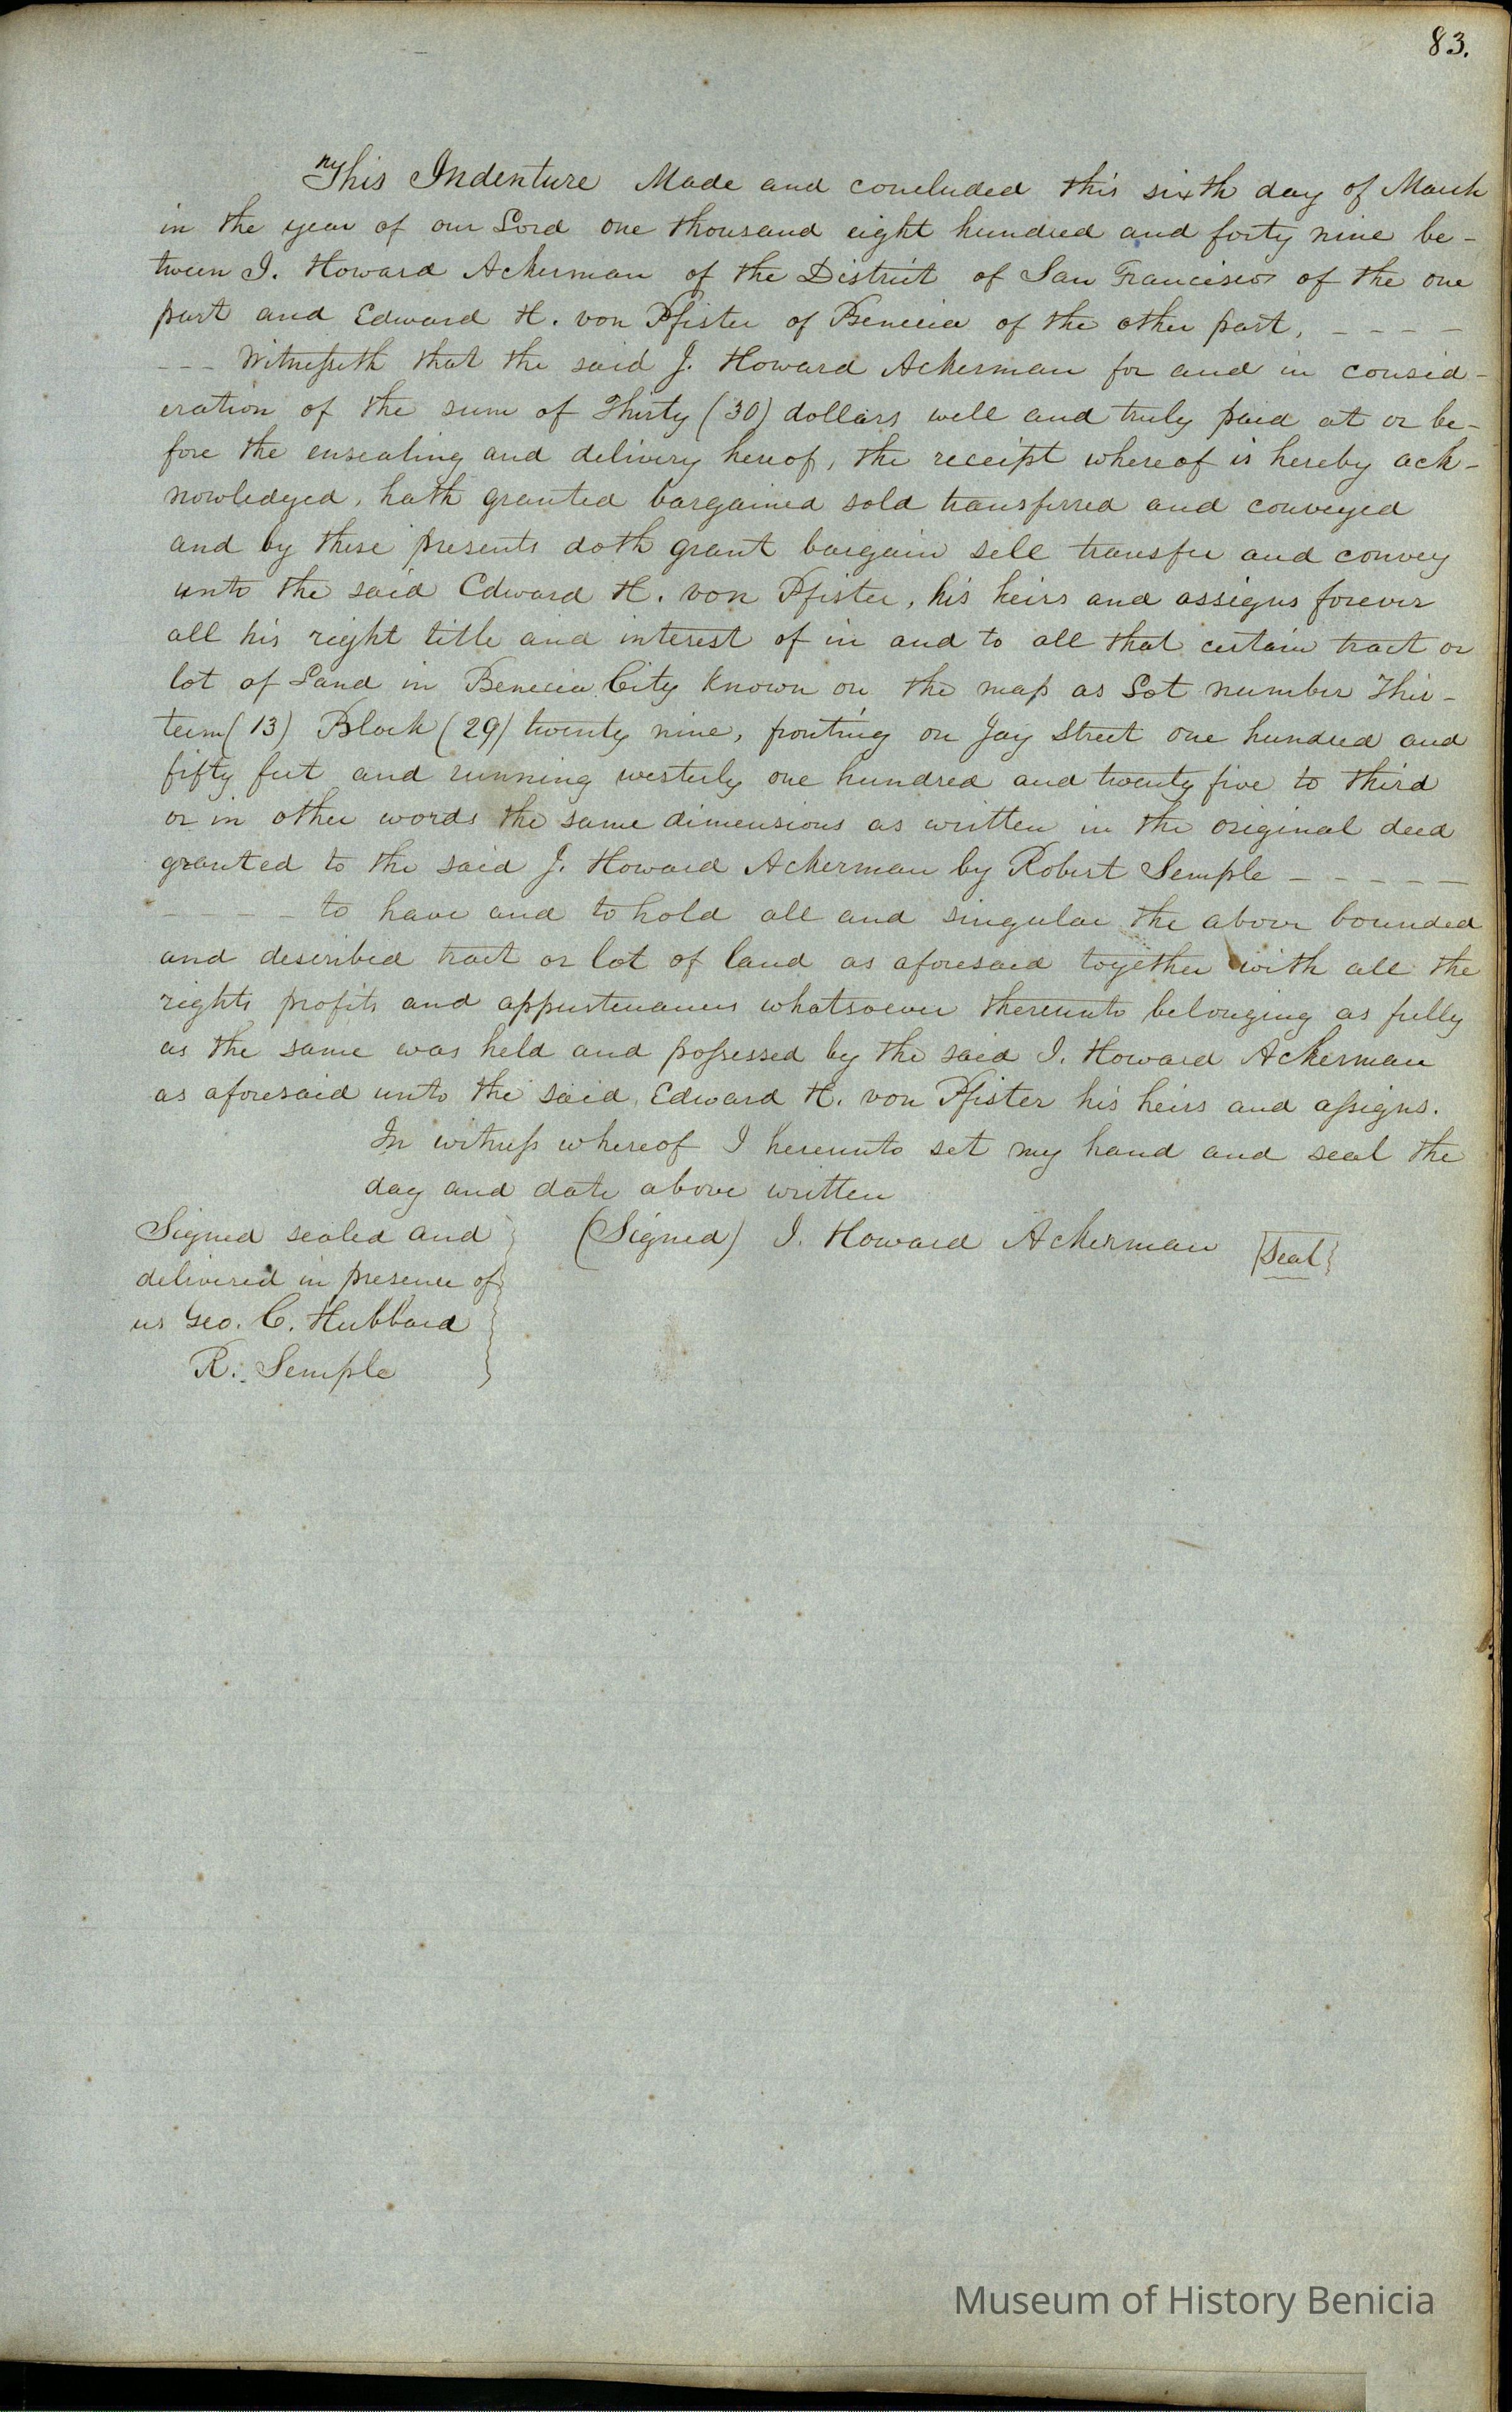 83.
This Indenture Made and concluded this sixth day of March
in the year of our Lord one thousand eight hundred and forty nine be-
tween J. Howard Ackerman of the District of San Francisco of the one
part and Edward H. von Pfister of Benicia of the other part, - - - -
- - - Witnesseth that the said J. Howard Ackerman for and in consid-
eration of the sum of Thirty (30) dollars well and truly paid at or be-
fore the ensealing and delivery hereof, the receipt whereof is hereby ack-
nowledged, hath granted bargained sold transferred and conveyed
and by these presents doth grant bargain sell transfer and convey
unto the said Edward H. von Pfister, his heirs and assigns forever
all his right title and interest of in and to all that certain tract or
lot of Land in Benicia City known on the map as Lot number Thir-
teen (13) Block (29) twenty nine, fronting on Jay Street one hundred and
fifty feet and running westerly one hundred and twenty five to third
or in other words the same dimensions as written in the original deed
granted to the said J. Howard Ackerman by Robert Semple - - - - -
- - - - to have and to hold all and singular the above bounded
and described tract or lot of land as aforesaid together with all the
rights profits and appurtenances whatsoever thereunto belonging as fully
as the same was held and possessed by the said J. Howard Ackerman
as aforesaid unto the said Edward H. von Pfister his heirs and assigns.
In witness whereof I hereunto set my hand and seal the
day and date above written
Signed sealed and (Signed) J. Howard Ackerman Seal
delivered in presence of
us Geo. C. Hubbard
R. Semple
Museum of History Benicia